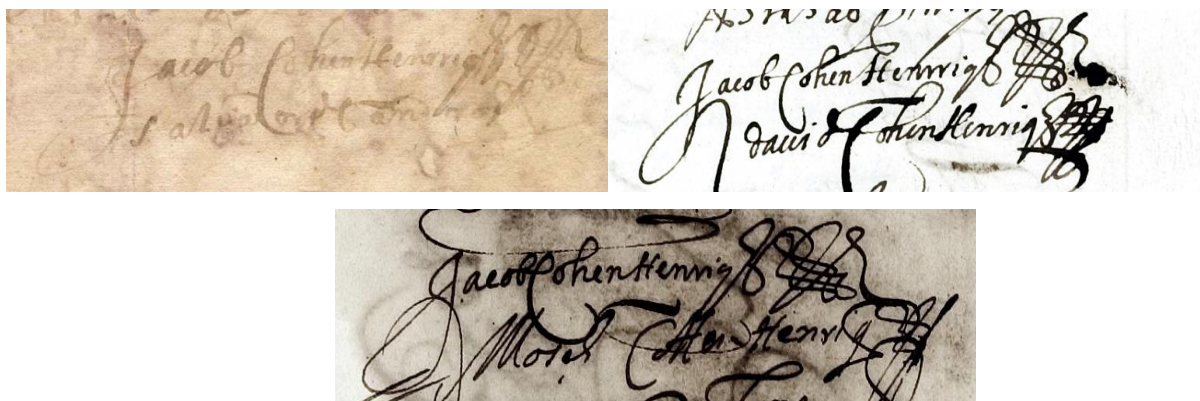 Jacob Cohen Henriq
Jacob Cohen Henriq
david Cohen Henriq
Jacob Cohen Henriq
Moses Cohen Henriq